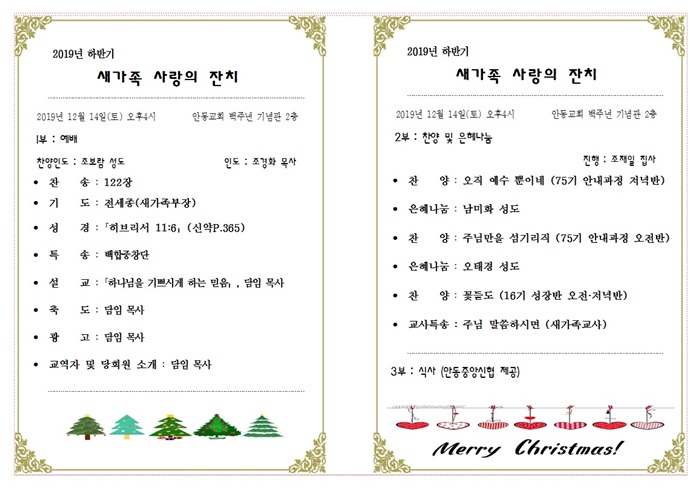 2019년 하반기
새가족 사랑의 잔치
2019년 12월 14일(토) 오후4시 안동교회 백주년 기념관 2층
1부 : 예배
찬양인도 : 조보람 성도 인도 : 조경화 목사
• 찬 송 : 122장
• 기 도 : 전세종(새가족부장)
• 성 경 : 「히브리서 11:6」 (신약P.365)
• 특 송 : 백합중창단
• 설 교 : 「하나님을 기쁘시게 하는 믿음」, 담임 목사
• 축 도 : 담임 목사
• 광 고 : 담임 목사
• 교역자 및 당회원 소개 : 담임 목사
2019년 하반기
새가족 사랑의 잔치
2019년 12월 14일(토) 오후4시 안동교회 백주년 기념관 2층
2부 : 찬양 및 은혜나눔
진행 : 조재일 집사
• 찬 양 : 오직 예수 뿐이네 (75기 안내과정 저녁반)
• 은혜나눔 : 남미화 성도
• 찬 양 : 주님만을 섬기리직 (75기 안내과정 오전반)
• 은혜나눔 : 오태경 성도
• 찬 양 : 꽃들도 (16기 성장반 오전·저녁반)
• 교사특송 : 주님 말씀하시면 (새가족교사)
3부 : 식사 (안동중앙신협 제공)
Merry Christmas!